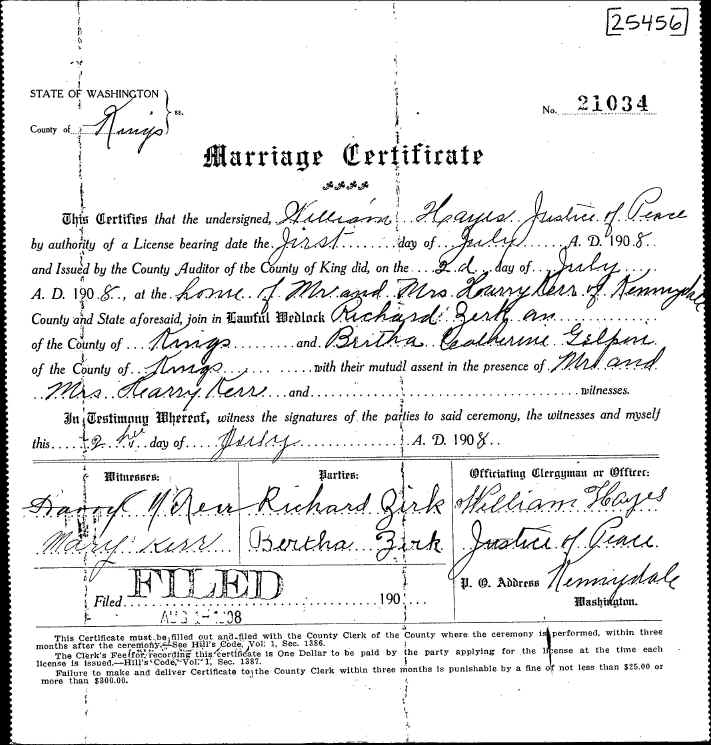 25456
STATE OF WASHINGTON
ss.
County of Kings
No. 21034
Marriage Certificate
This Certifies that the undersigned, William Hayes Justice of Peace
by authority of a License bearing date the first day of July A. D. 1908
and Issued by the County Auditor of the County of King did, on the 2d day of July
A. D. 1908., at the home of Mr and Mrs Harry Kerr of Kennydale
County and State aforesaid, join in Lawful Wedlock Richard Zirk an
of the County of Kings and Bertha Catherine
of the County of Kings with their mutual assent in the presence of Mr and
Mrs Hearry Kerr and witnesses.
In Testimony Whereof, witness the signatures of the parties to said ceremony, the witnesses and myself
this 2 day of July A. D. 1908.
Witnesses: Parties: Officiating Clergyman or Officer:
Kerr Richard Zirk William Hayes
Mary Kerr Bertha Zirk Justice of Peace
P. O. Address Kennydale
Washington.
FILED
Filed 190
AUG 1908
This Certificate must be filled out and filed with the County Clerk of the County where the ceremony is performed, within three
months after the ceremony.—See Hill's Code, Vol. 1, Sec. 1386.
The Clerk's Fee for recording this certificate is One Dollar to be paid by the party applying for the license at the time each
license is issued.—Hill's Code, Vol. 1, Sec. 1387.
Failure to make and deliver Certificate to the County Clerk within three months is punishable by a fine of not less than $25.00 or
more than $300.00.